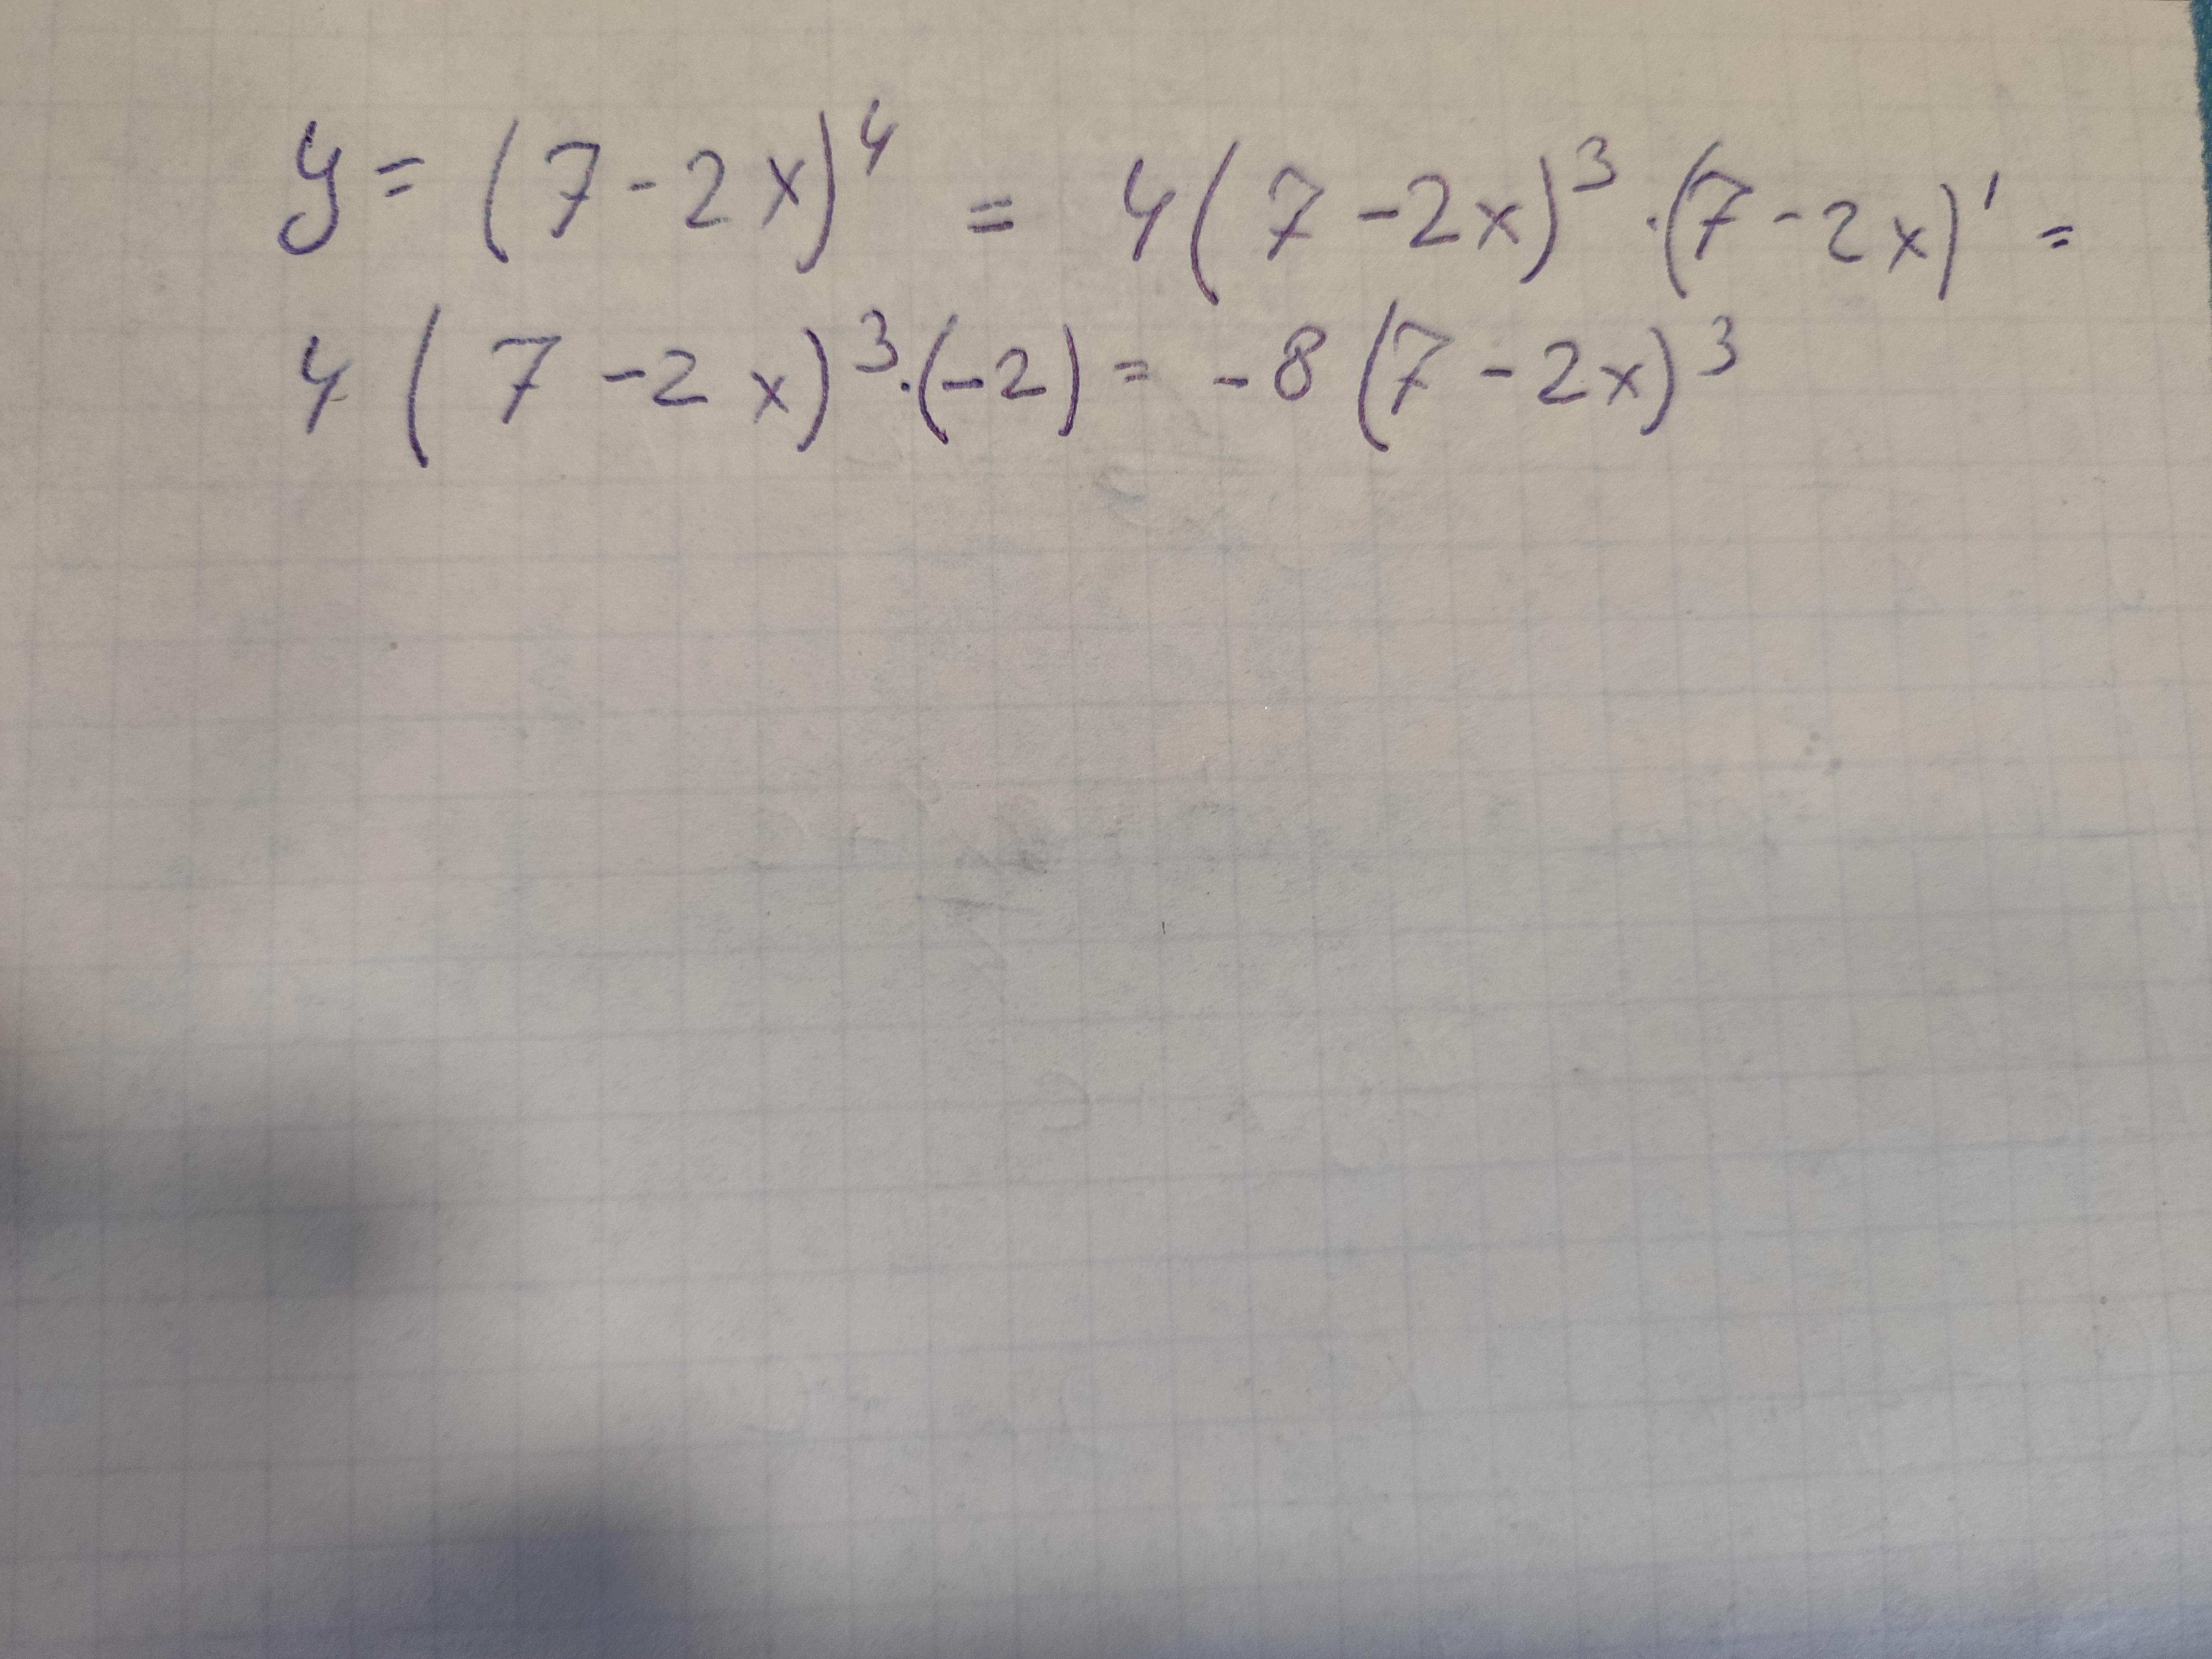 y = (7 - 2x)⁴ = 4(7 - 2x)³ · (7 - 2x)' =
4(7 - 2x)³ · (-2) = -8(7 - 2x)³